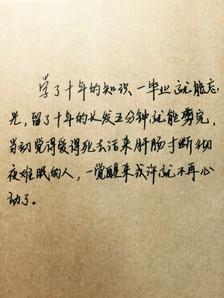 学了十年的知识一毕业就能忘
光，留了十年的长发五分钟就能剪完，
当初觉得爱得死去活来肝肠寸断彻
夜难眠的人，一觉醒来或许就不再心
动了。